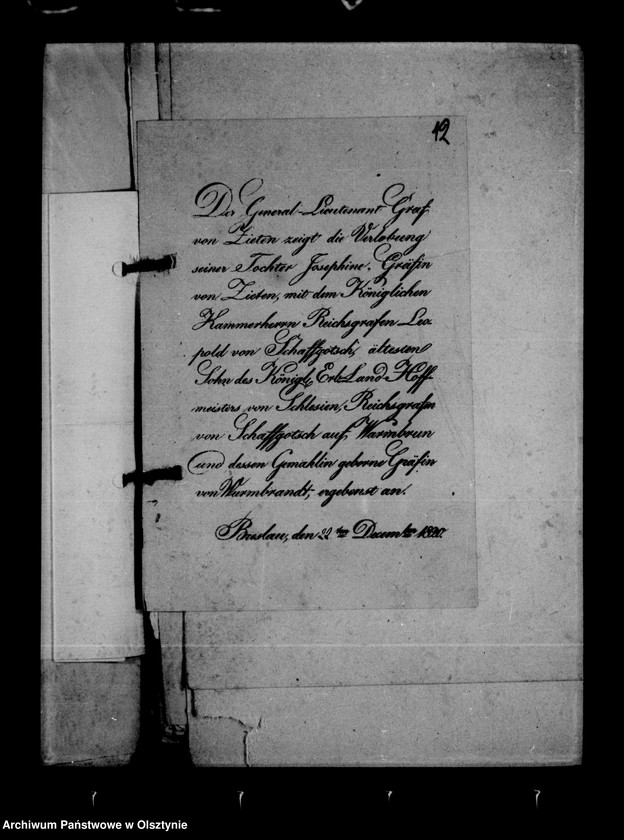 12
Der General-Lieutenant Graf
von Zieten zeigt die Verlobung
seiner Tochter Josephine, Gräfin
von Zieten, mit dem Königlichen
Kammerherrn Reichsgrafen Leo-
pold von Schaffgotsch, ältesten
Sohn des Königl. Erb-Land-Hoff-
meisters von Schlesien, Reichsgrafen
von Schaffgotsch auf Warmbrun
und dessen Gemahlin geborne Gräfin
von Wurmbrandt, ergebenst an.
Breslau, den 22ten December 1820.
Archiwum Państwowe w Olsztynie